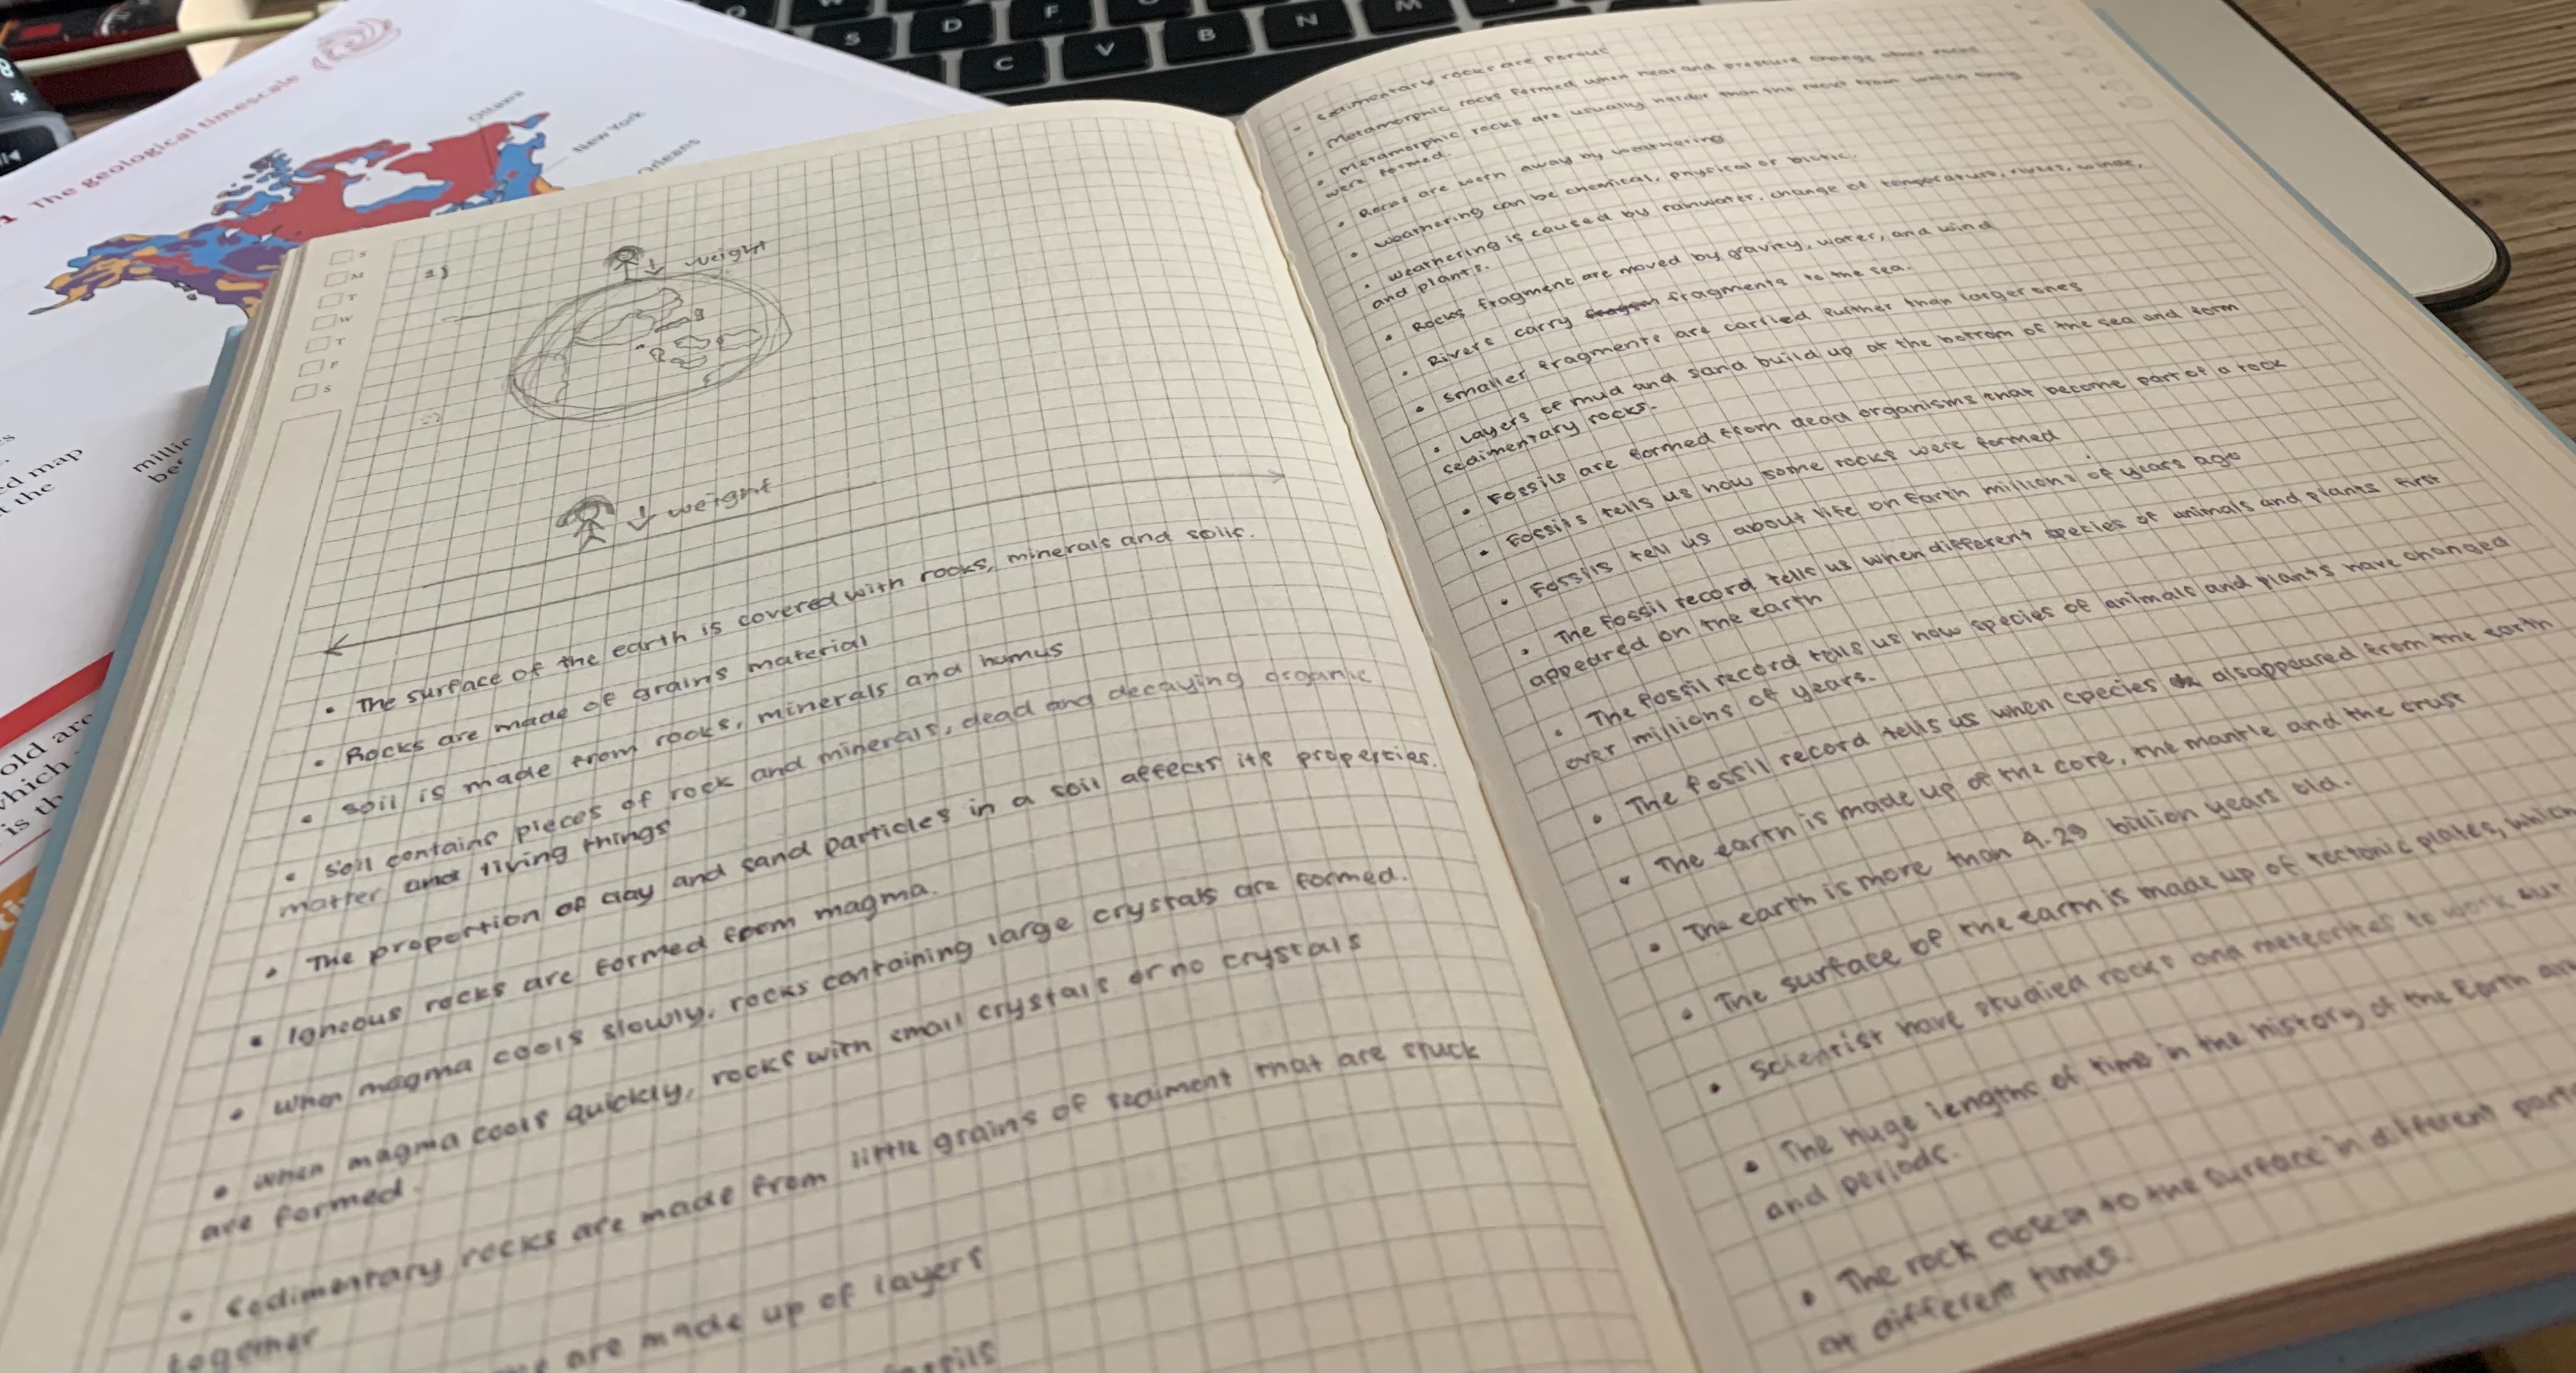 The geological timescale
Ottawa
New York
Orleans
ed map
t the
millic
old are
which
is th
S
M
T
W
T
F
S
2)
↓ weight
↓ weight
• The surface of the earth is covered with rocks, minerals and soils.
• Rocks are made of grains material
• soil is made from rocks, minerals and humus
• soil contains pieces of rock and minerals, dead and decaying organic
matter and living things
• The proportion of clay and sand particles in a soil affects its properties.
• Igneous rocks are formed from magma.
• when magma cools slowly, rocks containing large crystals are formed.
• when magma cools quickly, rocks with small crystals or no crystals
are formed.
• Sedimentary rocks are made from little grains of sediment that are stuck
together
are made up of layers
• sedimentary rocks are porous
• Metamorphic rocks formed when heat and pressure change other rocks
• Metamorphic rocks are usually harder than the rocks from which they
were formed.
• Rocks are worn away by weathering
• weathering can be chemical, physical or biotic.
• weathering is caused by rainwater, change of temperature, rivers, winds,
and plants.
• Rocks fragment are moved by gravity, water, and wind
• Rivers carry fragments to the sea.
• smaller fragments are carried further than larger ones
• Layers of mud and sand build up at the bottom of the sea and form
sedimentary rocks.
• Fossils are formed from dead organisms that become part of a rock
• Fossils tells us how some rocks were formed
• Fossils tell us about life on Earth millions of years ago
• The fossil record tells us when different species of animals and plants first
appeared on the earth
• The fossil record tells us how species of animals and plants have changed
over millions of years.
• The fossil record tells us when species disappeared from the earth
• The earth is made up of the core, the mantle and the crust
• The earth is more than 4.29 billion years old.
• The surface of the earth is made up of tectonic plates, which
• Scientist have studied rocks and meteorites to work out
• The huge lengths of time in the history of the Earth are
and periods.
• The rock closest to the surface in different parts
at different times.
Q
W
S
D
F
C
V
B
N
M
8
*